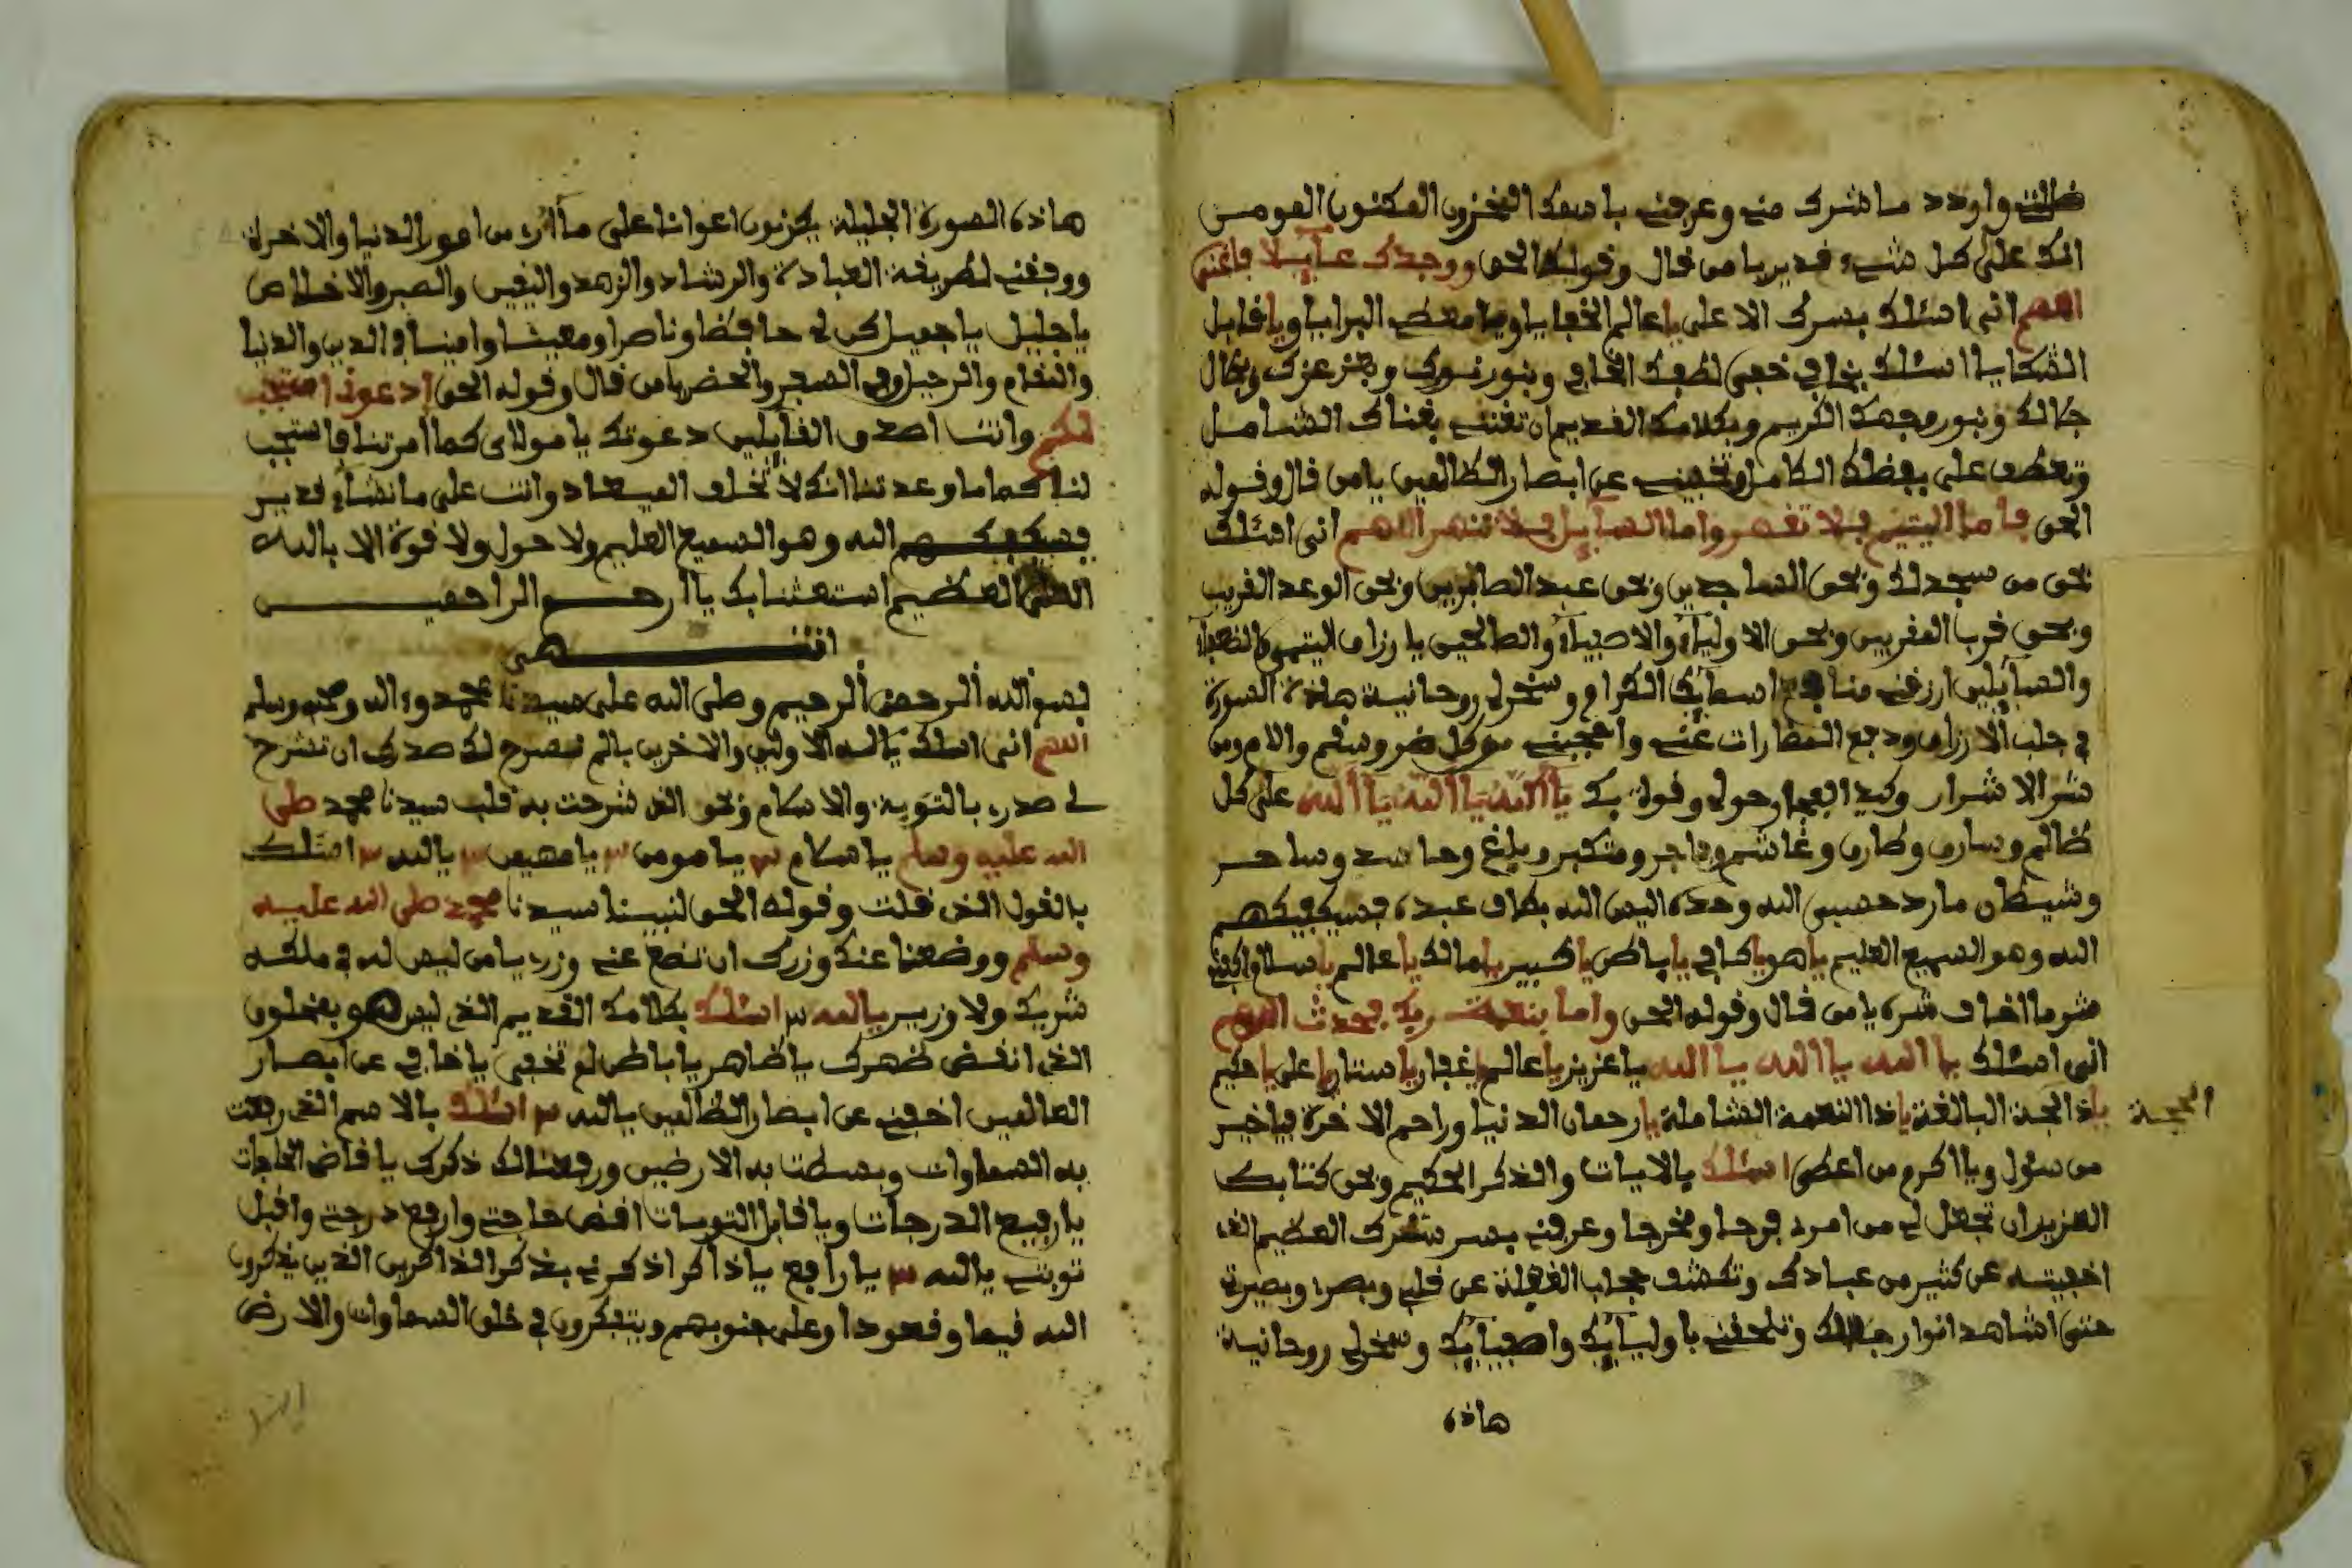 ضالتي واردد ما شرك مني وعرفني باسمك المخزون المكنون
انك على كل شيء قدير يا من قال وقوله الحق ووجدك عآيلا فاغنى
اللهم اني اسئلك بسرك الاعلى يا عالم الخفايا ويا معطي البرايا ويا قابل
الشكايا اسئلك بخافي خفي لطفك الخافي وبنور نورك وبعز عزك وبكمال
جمالك وبنور وجهك الكريم وبكلامك القديم ان تغنني بغناك الشامل
وتعطف علي بفضلك الكامل وتخفيني عن ابصار الظالمين يا من قال وقوله
الحق فاما اليتيم فلا تقهر واما السآيل فلا تنهر اللهم اني اسئلك
بحق من سجد لك وبحق الساجدين وبحق عبد الصابرين وبحق الوعد القريب
وبحق قرب المقربين وبحق الاوليآء والاصفيآء والصالحين يا رزاق اليتيم والضعفآء
والسآيلين ارزقني منافع اسمآيك الكرام وسخر لي روحانية هاذه السورة
في جلب الارزاق ودفع المضارات عني واحجبني من كل ضر وسقم والام ومن
شر الاشرار وكيد الفجار وحول وقوة بك يا الله يا الله يا الله على كل
ظالم وسارق وطارق وغاشم وفاجر ومتكبر وباغ وحاسد وساحر
وشيطان مارد حسبي الله وحده اليس الله بكاف عبده فسيكفيكهم
الله وهو السميع العليم يا هو يا كافي يا باطن يا كبير يا مالك يا عالم يا سلام اكفني
شر ما اخاف شره يا من قال وقوله الحق واما بنعمة ربك فحدث اللهم
اني اسئلك يا الله يا الله يا الله يا عزيز يا عالم يا غفار يا ستار يا علي يا حكيم
يا ذا الحجة البالغة يا ذا النعمة الشاملة يا رحمان الدنيا وراحم الاخرة يا خير
الحجة
من سئول ويا اكرم من اعطى اسئلك بالايات والذكر الحكيم وبحق كتابك
العزيز ان تجعل لي من امري فرجا ومخرجا وعرفني بسر سرك العظيم الذي
اخفيته عن كثير من عبادك وتكشف حجاب الغفلة عن قلبي وبصري وبصيرتي
حتى اشاهد انوار جمالك وتلحقني باوليآيك واصفيآيك وسخر لي روحانية
هاذه
هاذه السورة الجليلة يكونون اعوانا على ما اريد من امور الدنيا والاخرة
ووفقني لطريقة العبادة والرشاد والزهد واليقين والصبر والاخلاص
يا جليل يا جميل كن لي حافظا وناصرا ومغيثا وامينا في الدين والدنيا
والمقام والرحيل وفي السفر والحضر يا من قال وقوله الحق ادعوني استجب
لكم وانت اصدق القآيلين دعوتك يا مولاي كما امرتنا فاستجب
لنا كما وعدتنا انك لا تخلف الميعاد وانت على ما تشآء قدير
فسيكفيكهم الله وهو السميع العليم ولا حول ولا قوة الا بالله
العلي العظيم استعثنا بك يا ارحم الراحمين
انتهى
بسم الله الرحمن الرحيم وصلى الله على سيدنا محمد وءاله وصحبه وسلم
اللهم اني اسئلك يا اله الاولين والاخرين بالم نشرح لك صدرك ان تشرح
لي صدري بالتوبة والاسلام وبحق الذي شرحت به قلب سيدنا محمد صلى
الله عليه وسلم يا سلام ٣ يا مومن ٣ يا مهيمن ٣ يا الله ٣ اسئلك
بالقول الذي قلت وقولك الحق لنبينا سيدنا محمد صلى الله عليه
وسلم ووضعنا عنك وزرك ان تضع عني وزري يا من ليس له في ملكه
شريك ولا وزير يا الله ٣ اسئلك بكلامك القديم الذي ليس هو بمخلوق
الذي انقض ظهرك يا ظاهر يا باطن لم تخفى يا خافي عن ابصار
العالمين اخفني عن ابصار الظالمين يا الله ٣ اسئلك بالاسم الذي رفعت
به السماوات وبسطت به الارضين ورفعنا لك ذكرك يا قاضي الحاجات
يا رفيع الدرجات ويا قابل التوبات اقض حاجتي وارفع درجتي واقبل
توبتي يا الله ٣ يا رافع يا ذاكر اذكرني بذكر الذاكرين الذين يذكرون
الله قيما وقعودا وعلى جنوبهم ويتفكرون في خلق السماوات والارض